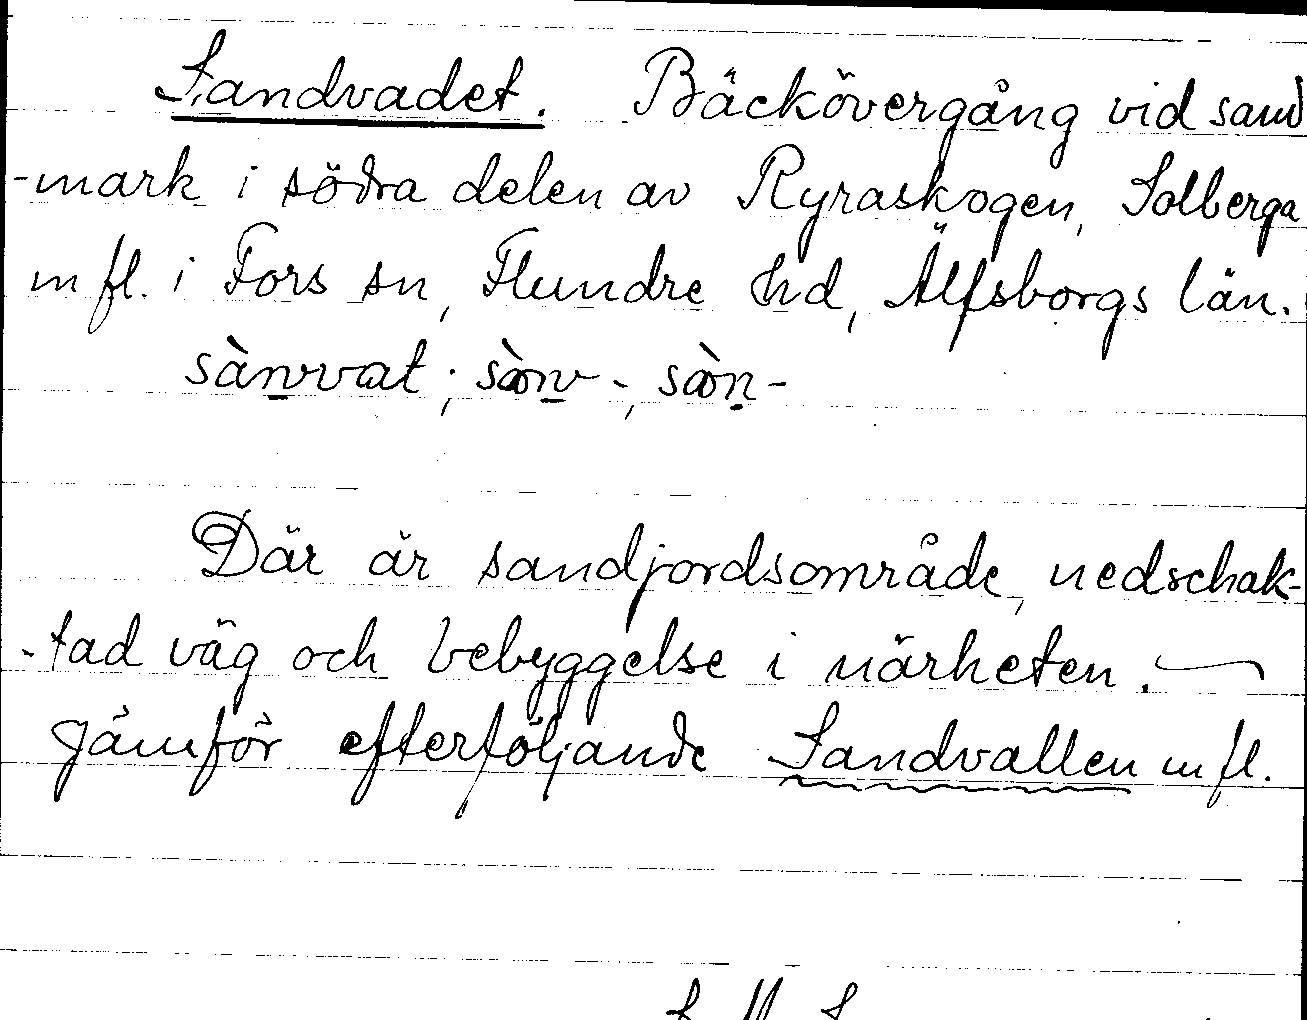 Sandvadet. Bäckövergång vid sand
-mark i södra delen av Ryraskogen, Solberga
m fl. i Fors sn, Flundre hd, Älfsborgs län.
Där är sandjordsområde, nedschak-
-tad väg och bebyggelse i närheten.
Jämför efterföljande Sandvallen m fl.